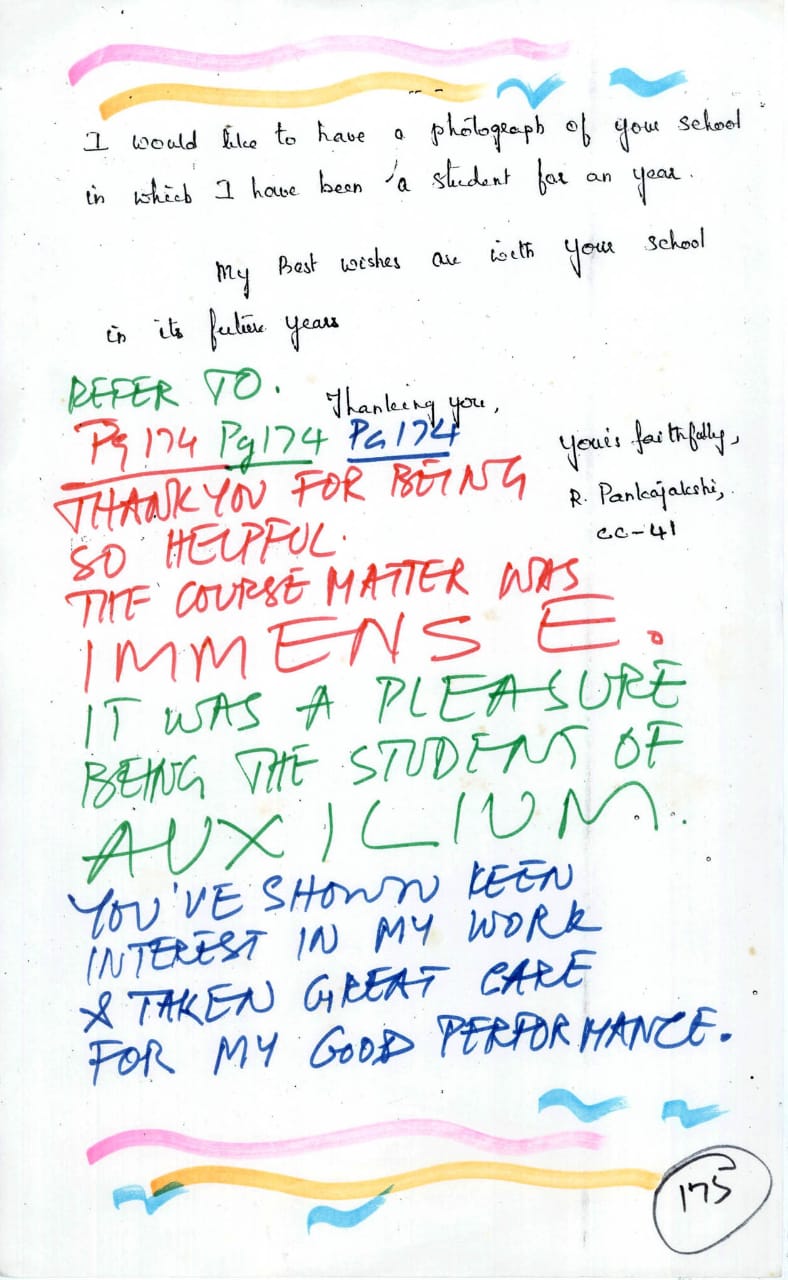 I would like to have a photograph of your school
in which I have been a student for an year.
My Best wishes are with your school
in its future years
REFER TO.
Thanking you,
Pg 174 Pg 174 Pg 174
Your's faithfully,
R. Pankajakshi,
CC-41
THANK YOU FOR BEING
SO HELPFUL.
THE COURSE MATTER WAS
IMMENSE.
IT WAS A PLEASURE
BEING THE STUDENT OF
AUXILIUM.
YOU'VE SHOWN KEEN
INTEREST IN MY WORK
& TAKEN GREAT CARE
FOR MY GOOD PERFORMANCE.
175